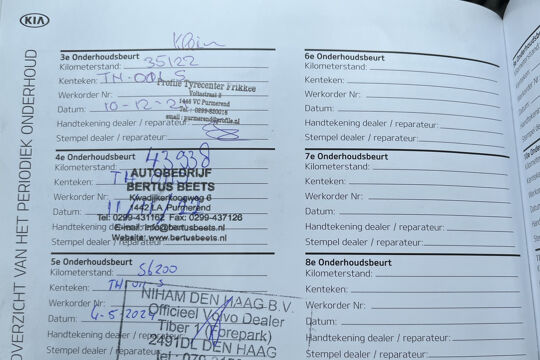 KIA
OVERZICHT VAN HET PERIODIEK ONDERHOUD
3e Onderhoudsbeurt
Kilometerstand: 35122
Kenteken:
Profile Tyrecenter Frikkee
Werkorder Nr:
Voltastraat 2
1446 VC Purmerend
Datum: 10-12-2
Tel.: 0299-820018
email: purmerend@profile.nl
Handtekening dealer / reparateur:
Stempel dealer / reparateur:
4e Onderhoudsbeurt
Kilometerstand: 43938
AUTOBEDRIJF
Kenteken:
BERTUS BEETS
Werkorder Nr:
Kwadijkerkoogweg 6
1442 LA Purmerend
Datum:
Tel: 0299-431162 Fax: 0299-437126
Handtekening dealer / reparateur:
E-mail: info@bertusbeets.nl
Stempel dealer / reparateur:
Website: www.bertusbeets.nl
5e Onderhoudsbeurt
Kilometerstand: 56200
Kenteken:
NIHAM DEN HAAG B.V.
Werkorder Nr:
Officieel Volvo Dealer
Datum: 4-5-2024
Tiber 1 (Forepark)
Handtekening dealer / reparateur:
2491DL DEN HAAG
Stempel dealer / reparateur:
6e Onderhoudsbeurt
Kilometerstand:
Kenteken:
Werkorder Nr:
Datum:
Handtekening dealer / reparateur:
Stempel dealer / reparateur:
7e Onderhoudsbeurt
Kilometerstand:
Kenteken:
Werkorder Nr:
Datum:
Handtekening dealer / reparateur:
Stempel dealer / reparateur:
8e Onderhoudsbeurt
Kilometerstand:
Kenteken:
Werkorder Nr:
Datum:
Handtekening dealer / reparateur:
Stempel dealer / reparateur: